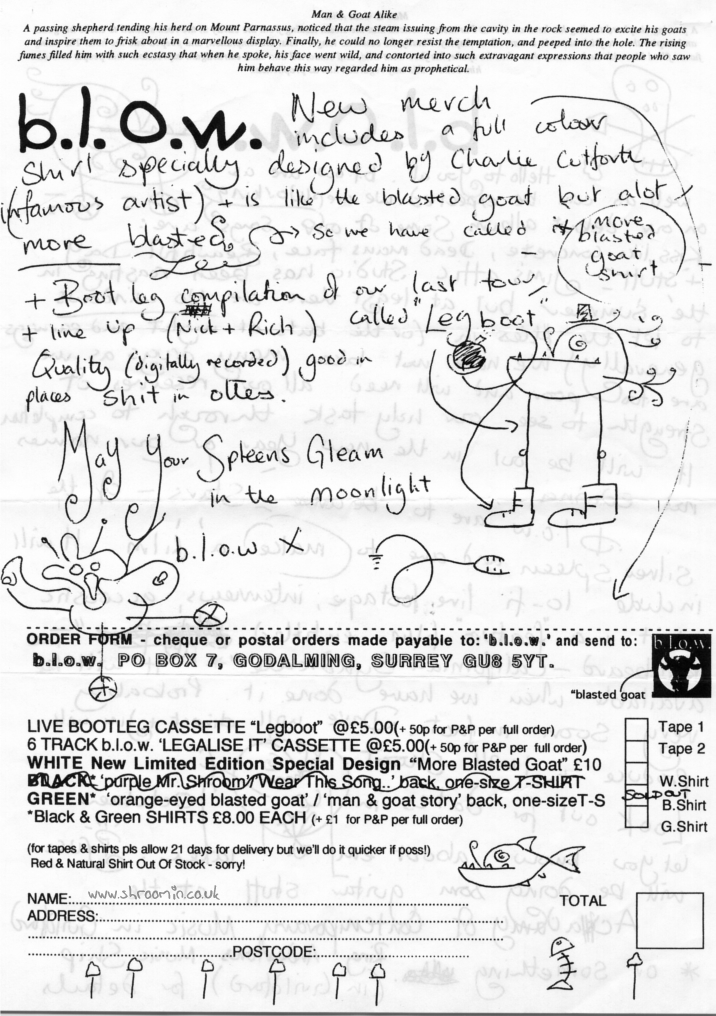 Man & Goat Alike
A passing shepherd tending his herd on Mount Parnassus, noticed that the steam issuing from the cavity in the rock seemed to excite his goats
and inspire them to frisk about in a marvellous display. Finally, he could no longer resist the temptation, and peeped into the hole. The rising
fumes filled him with such ecstasy that when he spoke, his face went wild, and contorted into such extravagant expressions that people who saw
him behave this way regarded him as prophetical.
b.l.o.w. New merch
includes a full colour
shirt specially designed by Charlie Cutforth
(infamous artist) + is like the blasted goat but alot
more blasted. So we have called it
more
blasted
goat
shirt
+ Boot leg compilation of our last tour,
+ line up (Nick + Rich) called "Leg boot"
Quality (digitally recorded) good in
places shit in others.
May Your Spleens Gleam
in the moonlight
b.l.o.w X
ORDER FORM - cheque or postal orders made payable to: 'b.l.o.w.' and send to:
b.l.o.w. PO BOX 7, GODALMING, SURREY GU8 5YT.
b.l.o.w.
*blasted goat
LIVE BOOTLEG CASSETTE "Legboot" @£5.00(+ 50p for P&P per full order) Tape 1
6 TRACK b.l.o.w. 'LEGALISE IT' CASSETTE @£5.00(+ 50p for P&P per full order) Tape 2
WHITE New Limited Edition Special Design "More Blasted Goat" £10 W.Shirt
BLACK* 'purple Mr.Shroom'/'Wear This Song..' back, one-size T-SHIRT SOLD OUT B.Shirt
GREEN* 'orange-eyed blasted goat' / 'man & goat story' back, one-sizeT-S G.Shirt
*Black & Green SHIRTS £8.00 EACH (+ £1 for P&P per full order)
(for tapes & shirts pls allow 21 days for delivery but we'll do it quicker if poss!)
Red & Natural Shirt Out Of Stock - sorry!
NAME: www.shroomin.co.uk TOTAL
ADDRESS:
POSTCODE: